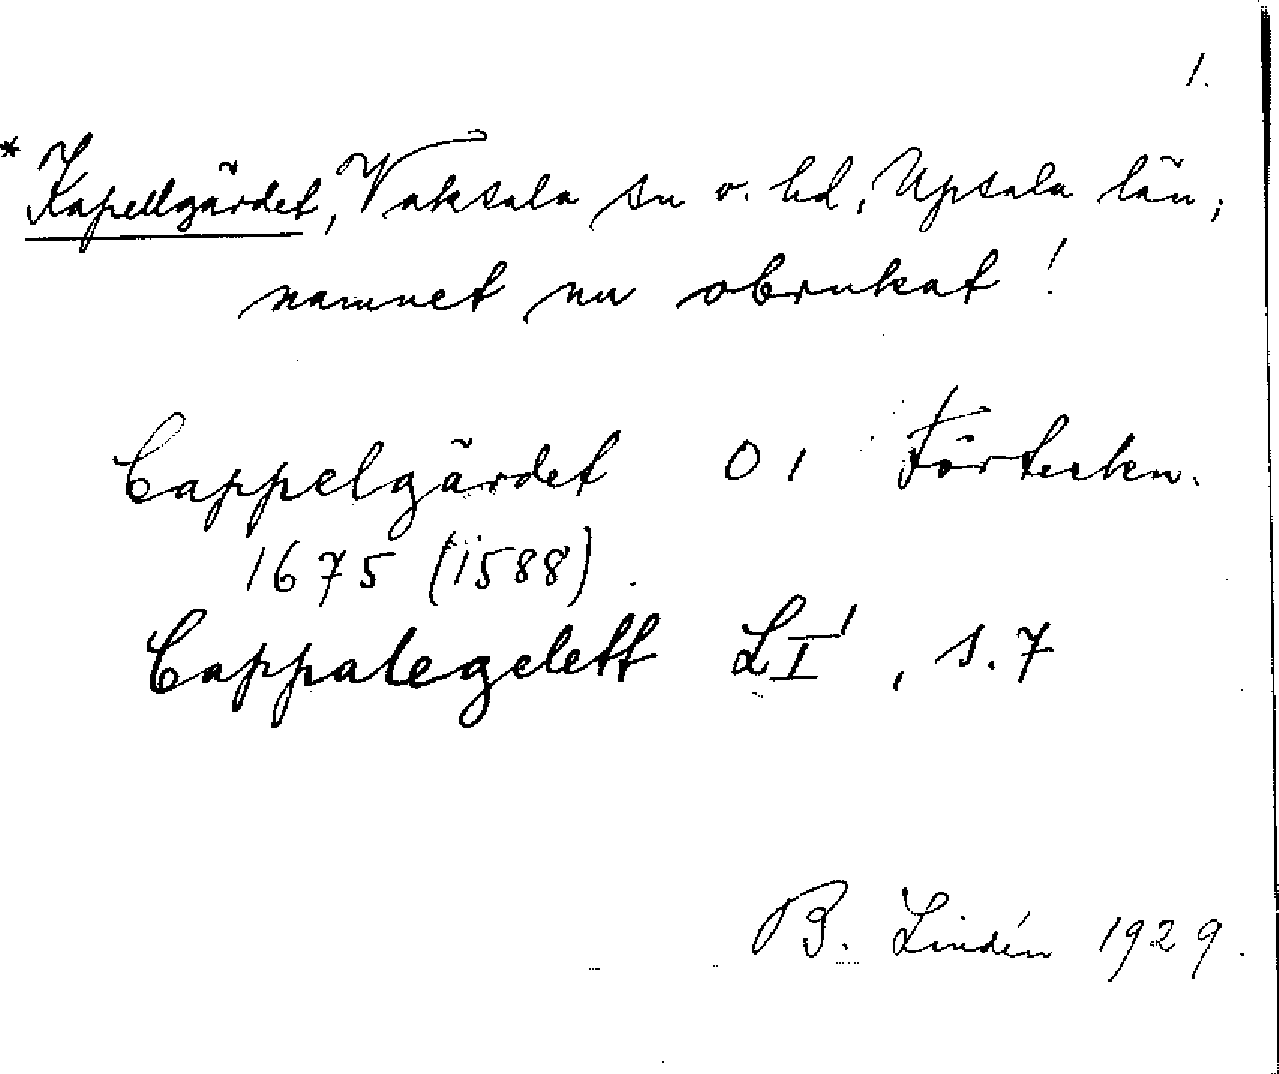 1.
* Kapellgärdet, Vaksala sn o. hd, Upsala län;
namnet nu obrukat!
Cappelgärdet 01 Förteckn.
1675 (1588).
Cappalegelett LI', s. 7
B. Lindén 1929.